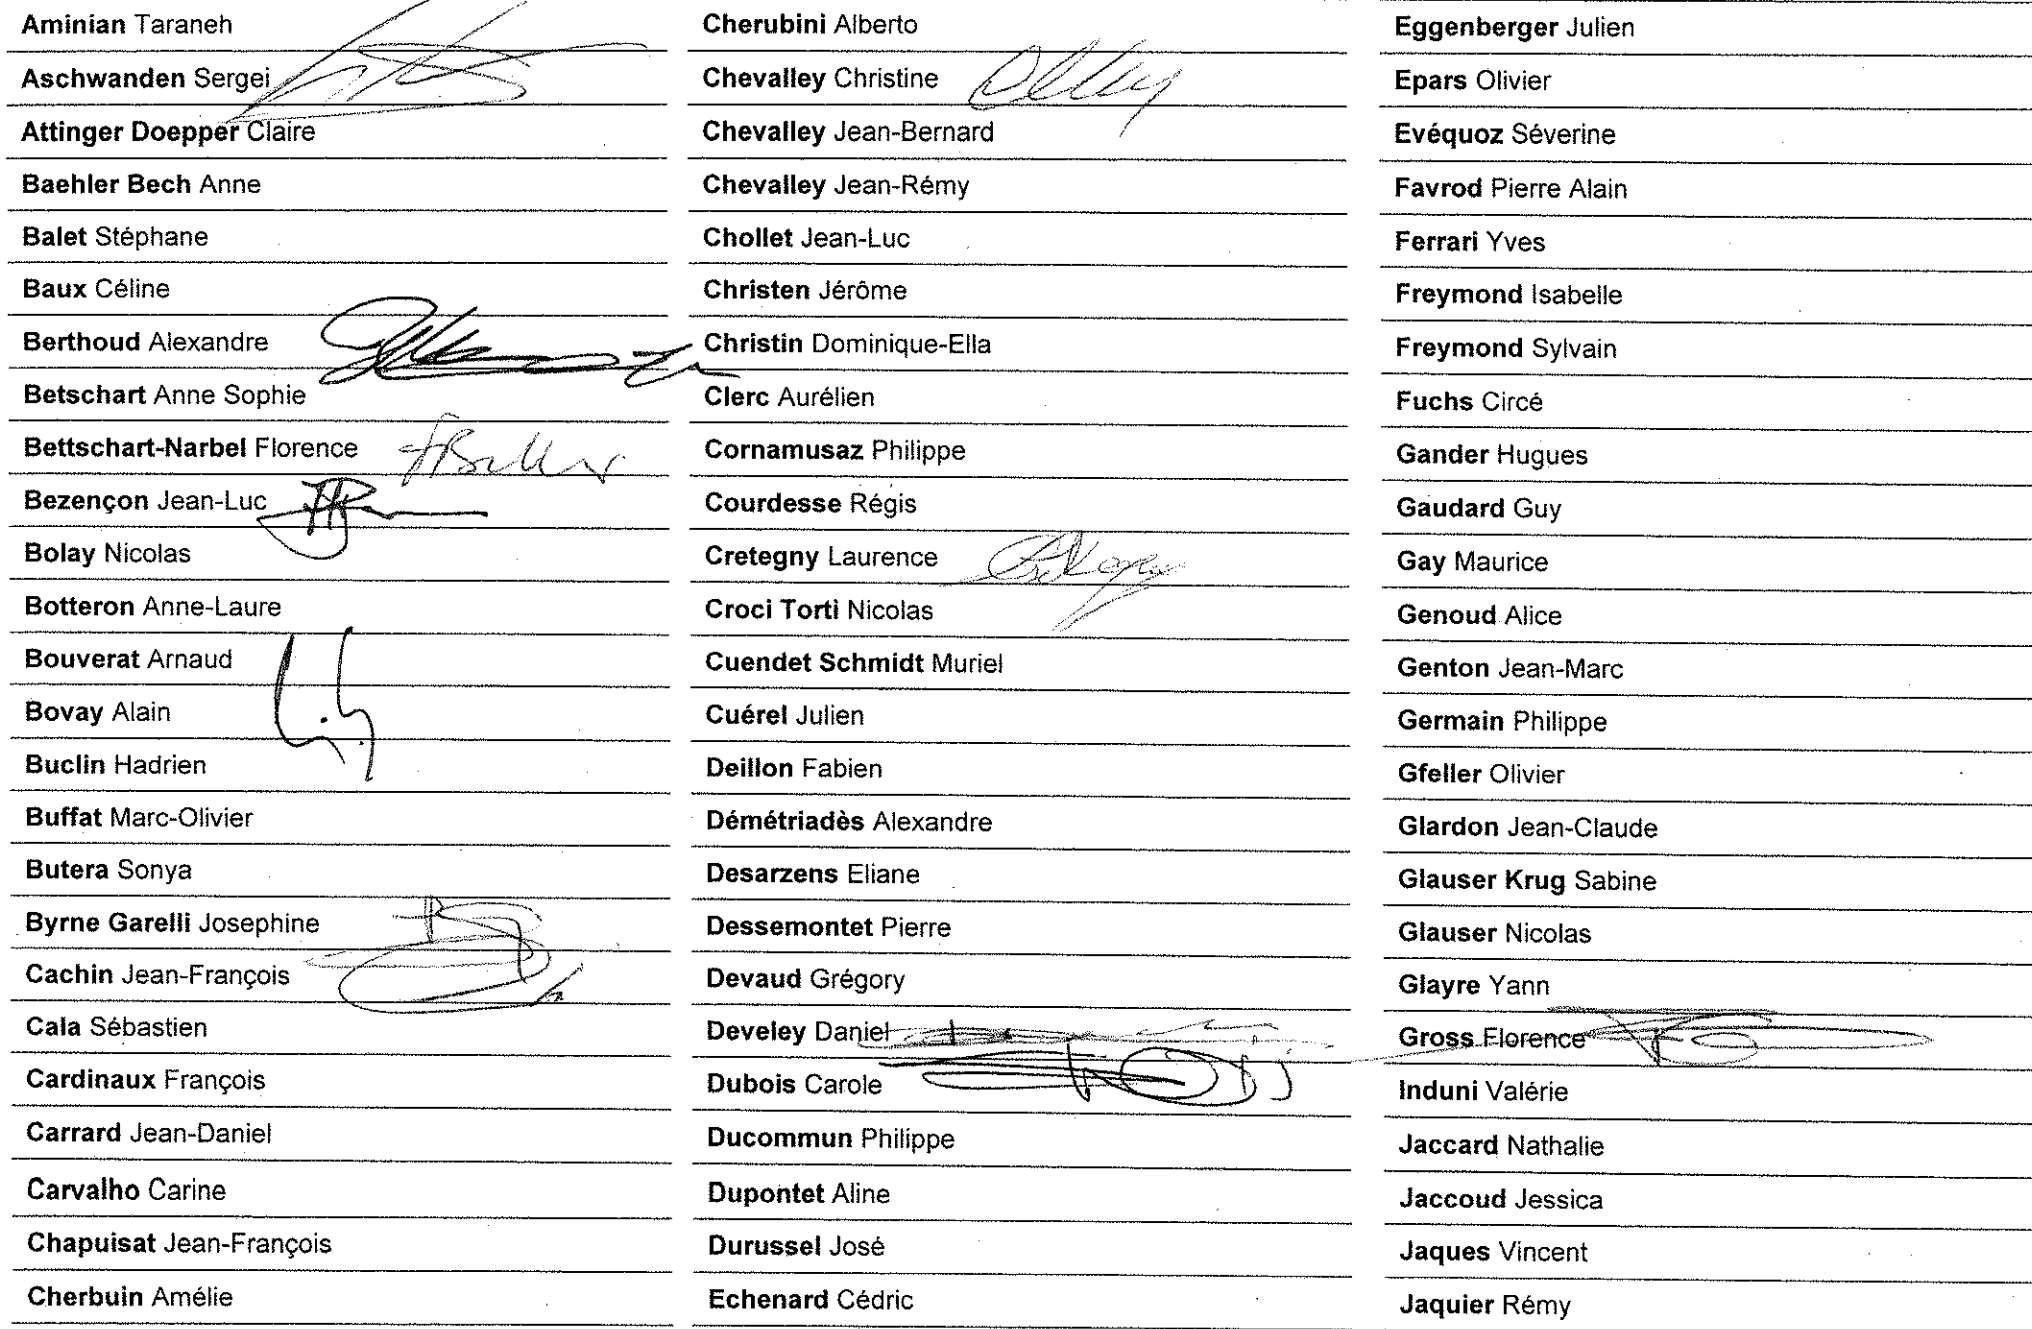 Aminian Taraneh
Aschwanden Sergei
Attinger Doepper Claire
Baehler Bech Anne
Balet Stéphane
Baux Céline
Berthoud Alexandre
Betschart Anne Sophie
Bettschart-Narbel Florence
Bezençon Jean-Luc
Bolay Nicolas
Botteron Anne-Laure
Bouverat Arnaud
Bovay Alain
Buclin Hadrien
Buffat Marc-Olivier
Butera Sonya
Byrne Garelli Josephine
Cachin Jean-François
Cala Sébastien
Cardinaux François
Carrard Jean-Daniel
Carvalho Carine
Chapuisat Jean-François
Cherbuin Amélie
Cherubini Alberto
Chevalley Christine
Chevalley Jean-Bernard
Chevalley Jean-Rémy
Chollet Jean-Luc
Christen Jérôme
Christin Dominique-Ella
Clerc Aurélien
Cornamusaz Philippe
Courdesse Régis
Cretegny Laurence
Croci Torti Nicolas
Cuendet Schmidt Muriel
Cuérel Julien
Deillon Fabien
Démétriadès Alexandre
Desarzens Eliane
Dessemontet Pierre
Devaud Grégory
Develey Daniel
Dubois Carole
Ducommun Philippe
Dupontet Aline
Durussel José
Echenard Cédric
Eggenberger Julien
Epars Olivier
Evéquoz Séverine
Favrod Pierre Alain
Ferrari Yves
Freymond Isabelle
Freymond Sylvain
Fuchs Circé
Gander Hugues
Gaudard Guy
Gay Maurice
Genoud Alice
Genton Jean-Marc
Germain Philippe
Gfeller Olivier
Glardon Jean-Claude
Glauser Krug Sabine
Glauser Nicolas
Glayre Yann
Gross Florence
Induni Valérie
Jaccard Nathalie
Jaccoud Jessica
Jaques Vincent
Jaquier Rémy